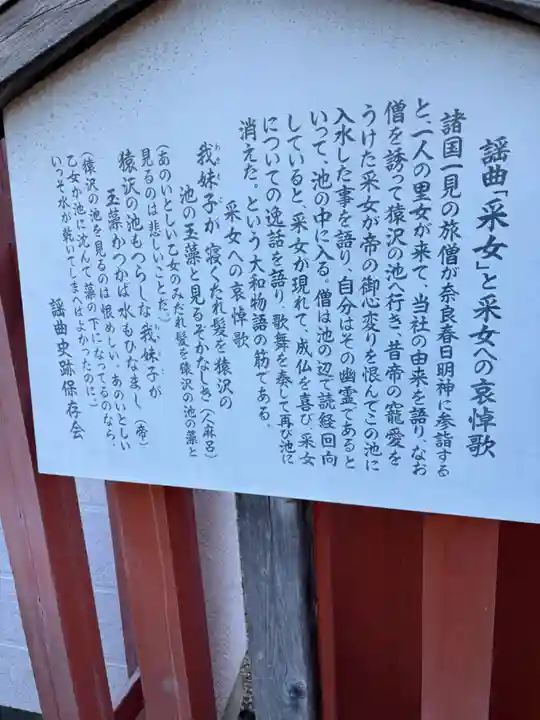 謡曲「采女」と采女への哀悼歌
諸国一見の旅僧が奈良春日明神に参詣する
と、一人の里女が来て、当社の由来を語り、なお
僧を誘って猿沢の池へ行き、昔帝の寵愛を
うけた采女が帝の御心変りを恨んでこの池に
入水した事を語り、自分はその幽霊であると
いって、池の中に入る。僧は池の辺で読経回向
していると、采女が現れて、成仏を喜び、采女
についての逸話を語り、歌舞を奏して再び池に
消えた。という大和物語の筋である。
采女への哀悼歌
我妹子が寝くたれ髪を猿沢の
池の玉藻と見るぞかなしき(人麻呂)
(あのいとしい乙女のみだれ髪を猿沢の池の藻と
見るのは悲しいことだ)
猿沢の池もつらしな我妹子が
玉藻かつかば水もひなまし(帝)
(猿沢の池を見るのは恨めしい。あのいとしい
乙女が池に沈んで、藻の下になってるのなら、
いっそ水が乾いてしまへばよかったのに。)
謡曲史跡保存会